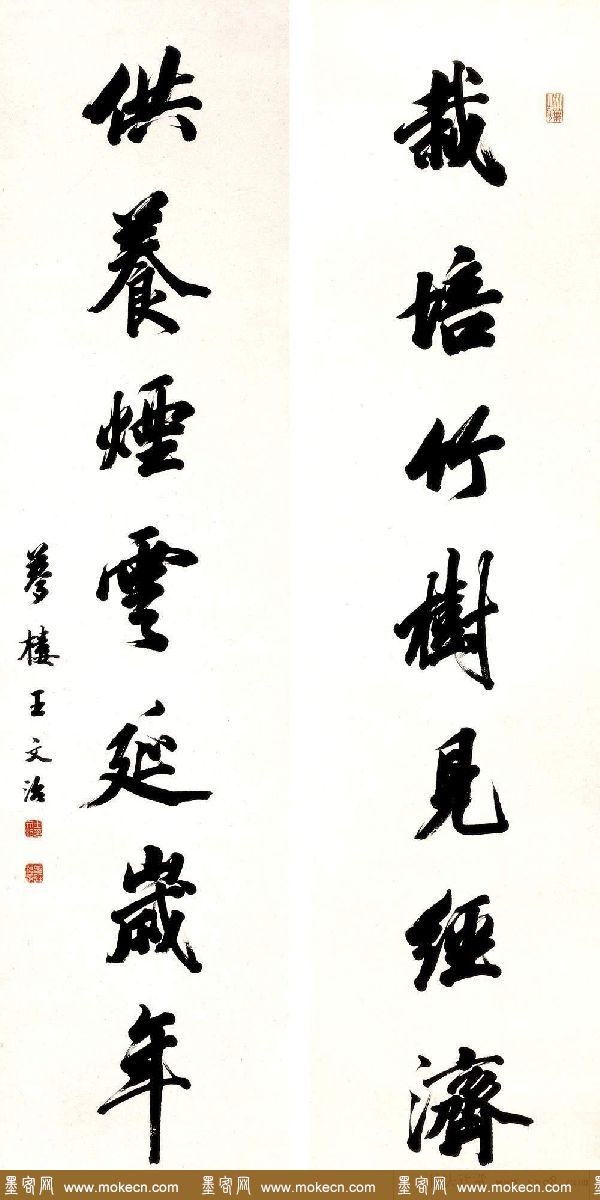 栽培竹樹見經濟
供養煙雲延歲年
夢樓王文治
墨客网 www.mokecn.com 墨客网 www.mokecn.com 墨客网 www.mokecn.com